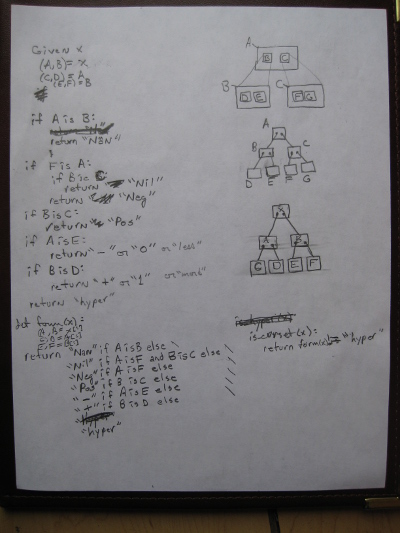 Given x
(A,B)= x
(C,D)= A
(E,F)=B
if A is B:
return "NaN"
if F is A:
if B is C
return "Nil"
return "Neg"
if B is C:
return "Pos"
if A is E:
return "-" or "0" or
if B is D:
return "+" or "1" or
return "hyper"
def form(x):
return "Nan" if A is B else \
"Nil" if A is F and B is C else \
"Neg" if A is F else \
"Pos" if B is C else \
"-" if A is E else \
"+" if B is D else
"hyper"
A
B C
B C
D E F G
A
B C
D E F G
A B
C D E F
is conset(x):
return form(x) "hyper"